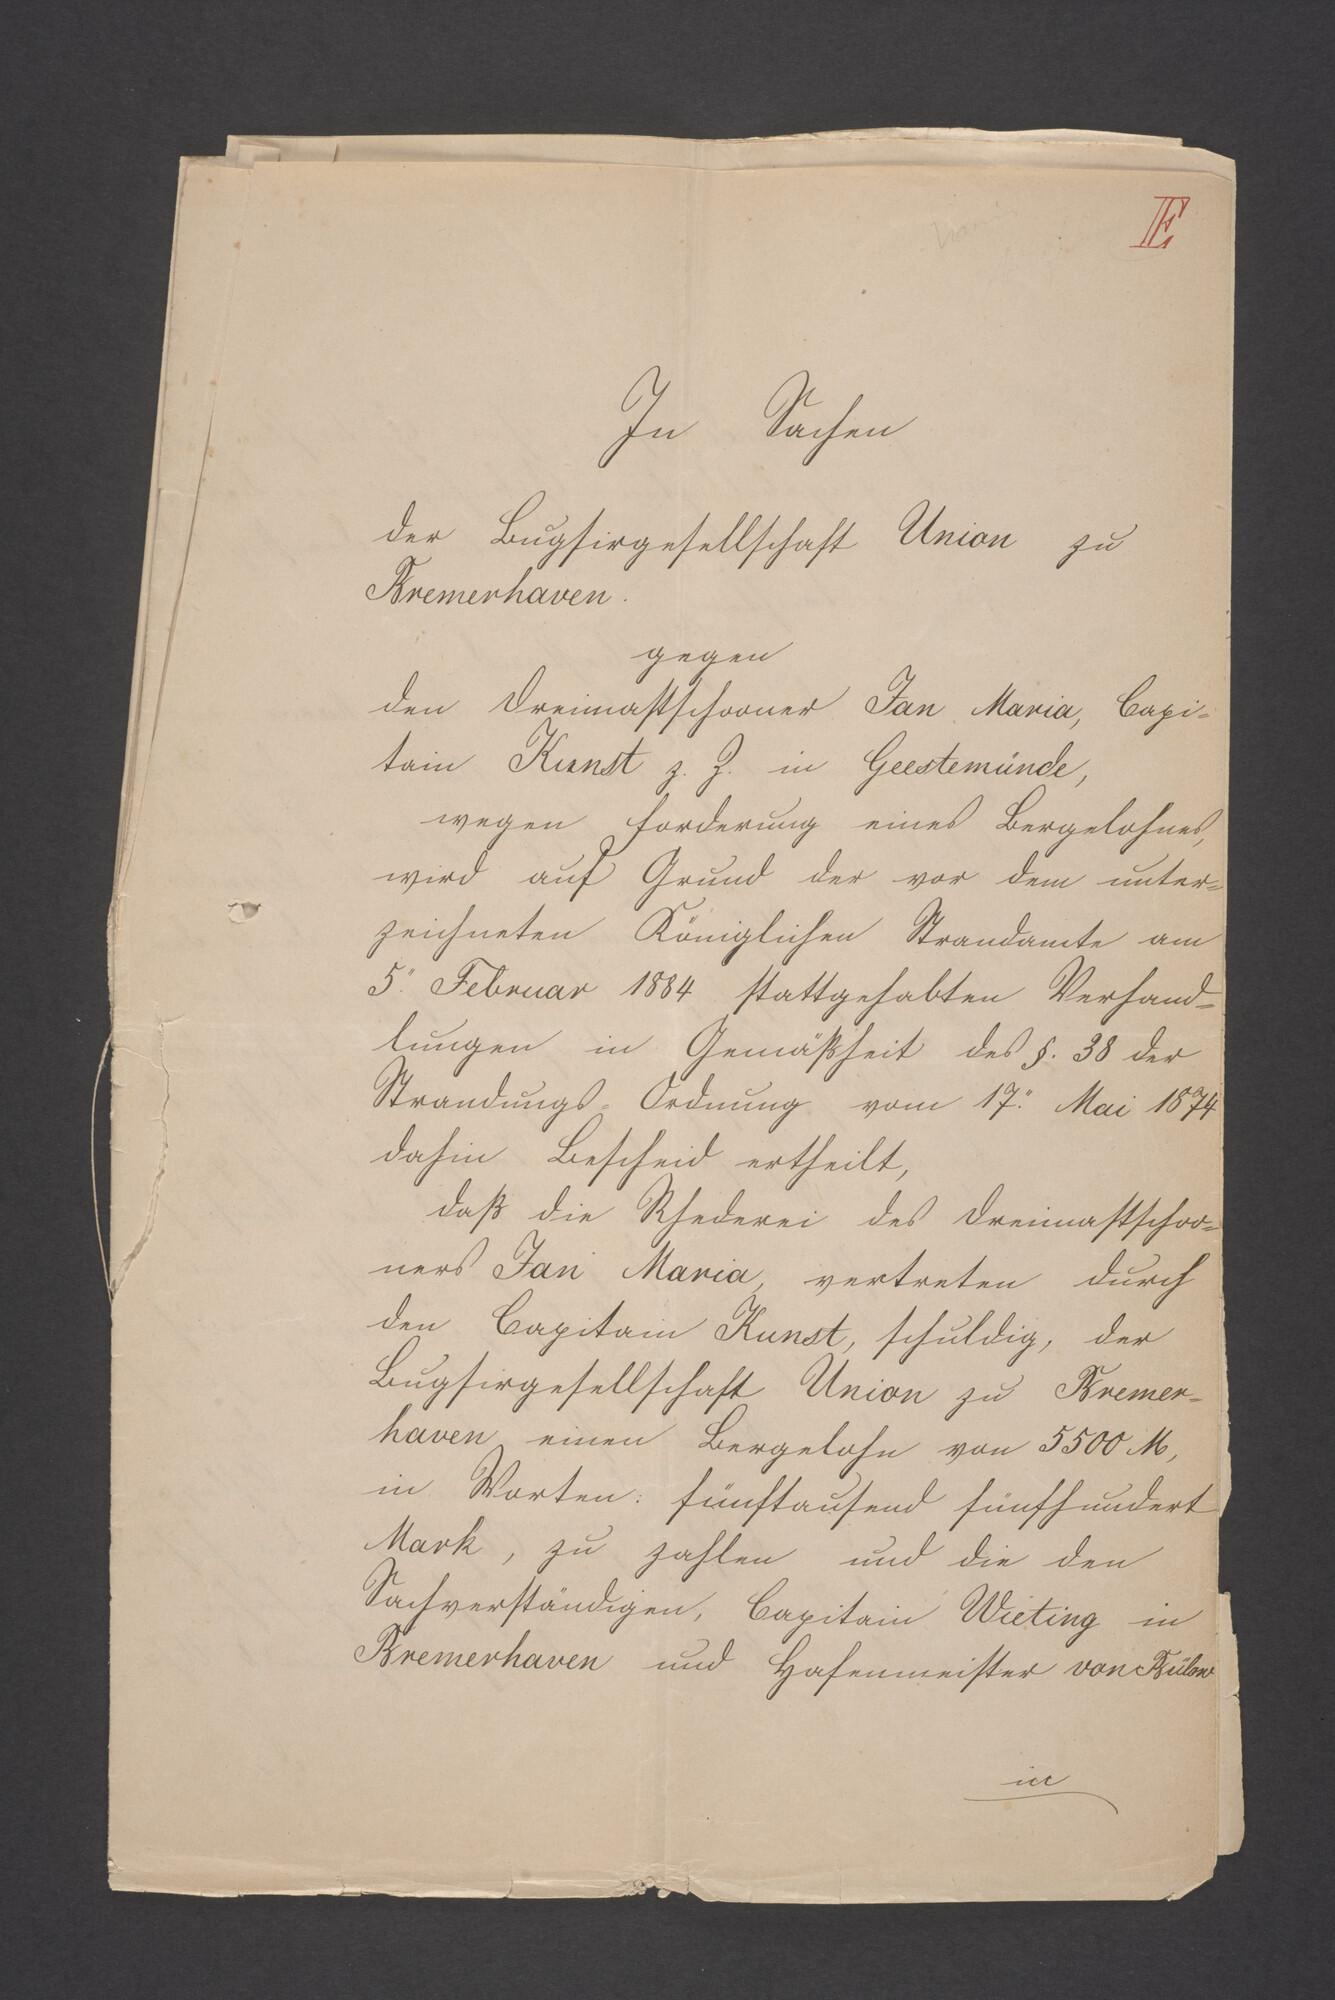 E
In Sachen
der Bugsirgesellschaft Union zu
Bremerhaven.
gegen
den Dreimastschooner Jan Maria, Capi-
tain Kunst z. Z. in Geestemünde,
wegen Forderung eines Bergelohnes,
wird auf Grund der vor dem unter-
zeichneten Königlichen Strandamte am
5. Februar 1884 stattgehabten Verhand-
lungen in Gemäßheit des §. 38 der
Strandungs-Ordnung vom 17. Mai 1874
dahin Bescheid ertheilt,
daß die Rhederei des Dreimastschoo-
ners Jan Maria, vertreten durch
den Capitain Kunst, schuldig, der
Bugsirgesellschaft Union zu Bremer-
haven einen Bergelohn von 5500 M,
in Worten: fünftausend fünfhundert
Mark, zu zahlen und die den
Sachverständigen, Capitain Wieting in
Bremerhaven und Hafenmeister von Bülow
in